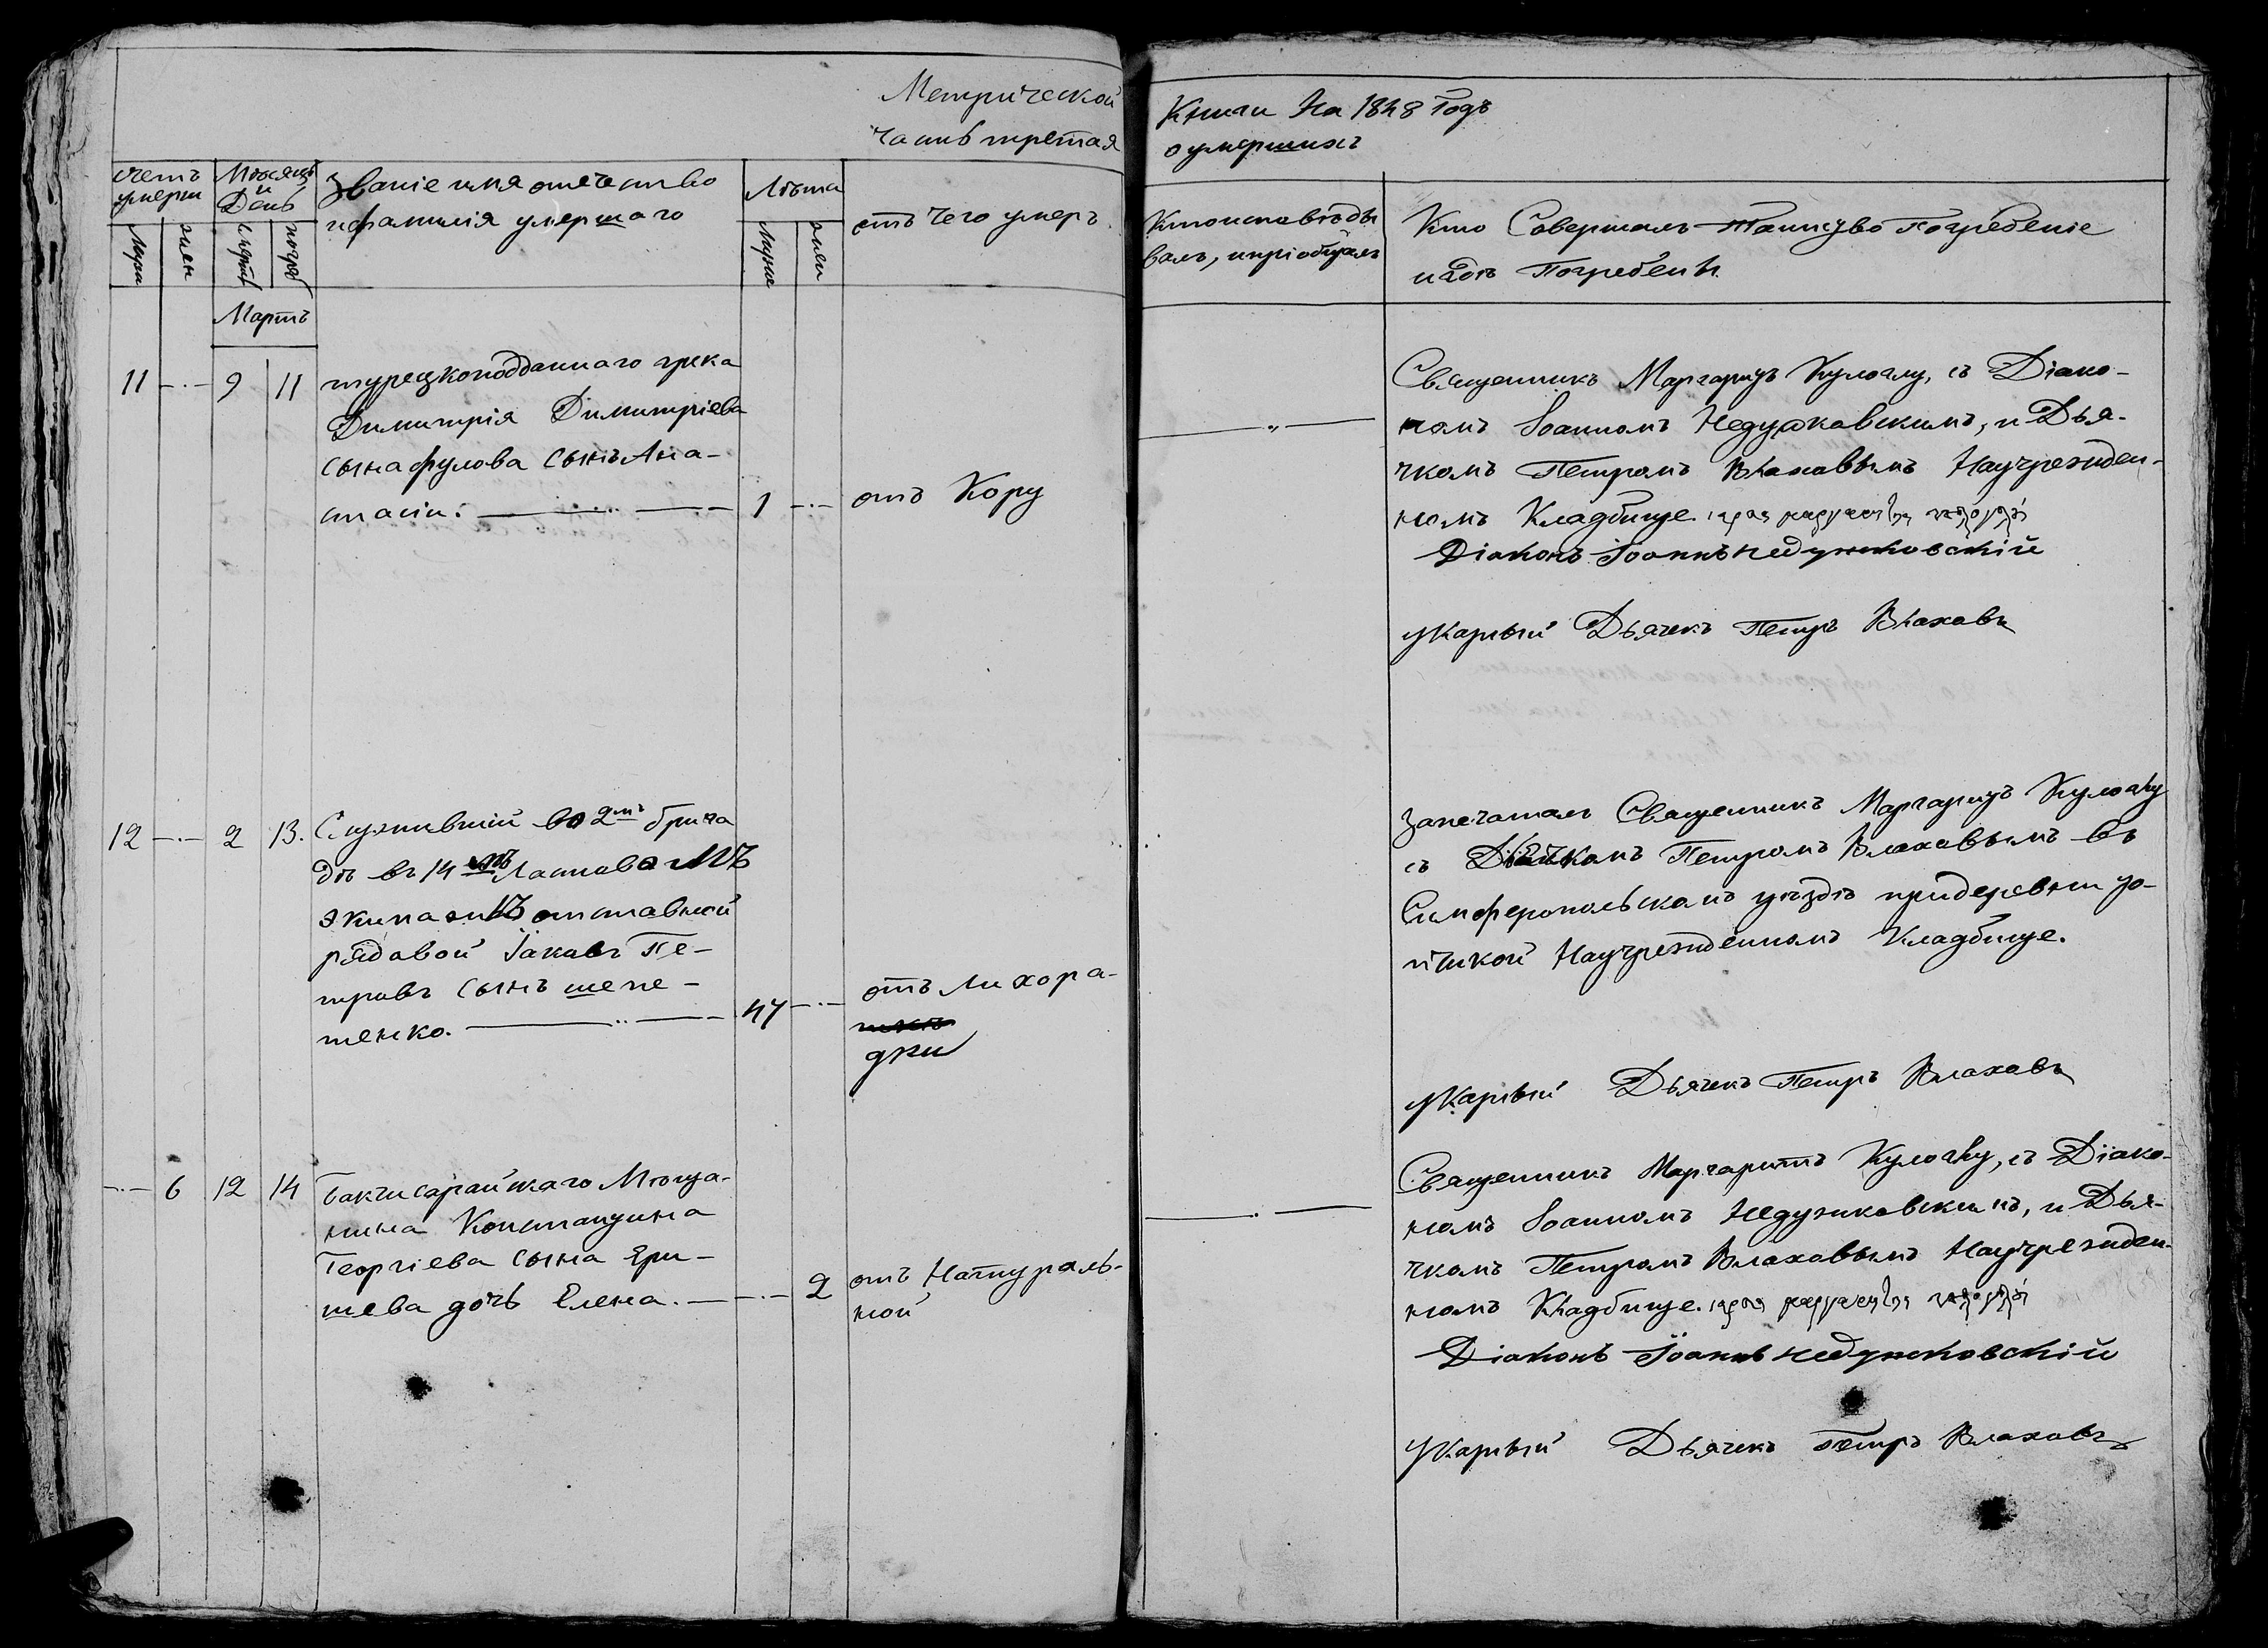 Метрической
часть третая
Книги На 1848 Годъ
о умершихъ
счетъ умерш
Мѣсяцъ и День
Званіе имя отечество
и фамилія умершаго
Лѣта
отъ чего умеръ
Кто исповѣды
валъ, и пріобщалъ
Кто Совершалъ Таинство Погребеніе
и гдѣ Погребенъ
Мартъ
11 9 11 турецкоподданнаго грека
Димитрія Димитріева
сына фулова сынъ Ана-
стасіи. 1 отъ Кору
Священникъ Маргаритъ Кулоглу, съ Діако-
номъ Іоанномъ Недужковскимъ, и Дья-
чкомъ Петромъ Влаховымъ На учрежден-
номъ Кладбище.
Діаконъ Іоаннъ Недужковскій
Указный Дьячекъ Петръ Влаховъ
12 2 13. Служившій во 2мъ брига
дѣ въ 14мъ Ластовомъ
экипажѣ отставной
рядовой Іаковъ Пе-
тровъ сынъ шепе-
тенко. 47 отъ Лихора-
дки
Запечаталъ Священникъ Маргаритъ Кулоглу
съ Дьячкомъ Петромъ Влаховымъ въ
Симферопольскомъ уѣздѣ при деревни
На учрежденномъ Кладбище.
Указный Дьячекъ Петръ Влаховъ
6 12 14 Бакчисарайскаго Мѣща-
нина Константина
Георгіева сына
дочь Елена. 2 отъ Натураль-
ной
Священникъ Маргаритъ Кулоглу, съ Діако-
номъ Іоанномъ Недужковскимъ, и Дья-
чкомъ Петромъ Влаховымъ На учрежден-
номъ Кладбище.
Діаконъ Іоаннъ Недужковскій
Указный Дьячекъ Петръ Влаховъ